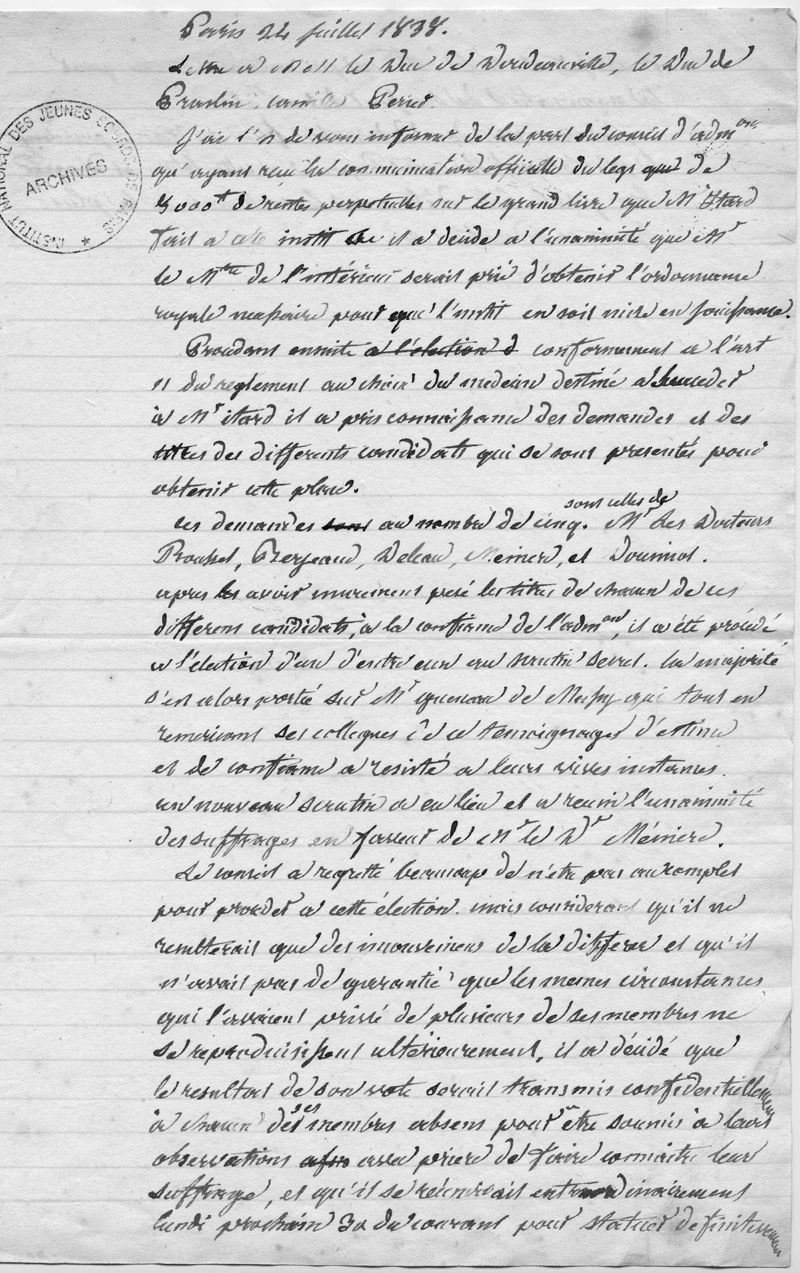 Paris 24 juillet 1838.
Lettre à MM le Duc de Doudeauville, le Duc de
Praslin, Camille Perier.
INSTITUT NATIONAL DES JEUNES SOURDS DE PARIS
ARCHIVES
J'ai l'h de vous informer de la part du conseil d'admon
qu'ayant reçu la communication officielle du legs que de
8000 de rente perpetuelles sur le grand livre que Mr Itard
fait a cette instit il a décidé a l'unanimité que Mr
le Mtre de l'intérieur serait prié d'obtenir l'ordonnance
royale necessaire pour que l'instit en soit mise en jouissance.
Procedant ensuite a l'election d conformement a l'art
11 du reglement au choix du medecin destiné a succeder
à Mr itard il a pris connaissance des demandes et des
titres des differents candidats qui se sont presentés pour
obtenir cette place.
Les demandes sont au nombre de cinq. sont celles de Mrs les Docteurs
Roussel, Berjeaud, Deleau, Meniere, et Doumiol.
apres les avoir murement pesé les titres de chacun de ces
differens candidats, à la confiance de l'admon, il a été procédé
a l'élection d'un d'entre eux au scrutin secret. la majorité
s'est alors portée sur Mr gueneau de Mussy qui tout en
remerciant ses collegues de ce temoignages d'estime
et de confiance a resisté a leurs vives instances.
un nouveau scrutin a eu lieu et a reuni l'unanimité
des suffrages en faveur de Mr le Dr Ménière.
Le conseil a regretté beaucoup de n'etre pas au complet
pour proceder a cette élection. mais considerant qu'il ne
resulterait que des inconveniens de la differer et qu'il
n'avait pas de garantie que les memes circonstances
qui l'avaient privé de plusieurs de ses membres ne
se reproduisissent ulterieurement, il a décidé que
le resultat de son vote serait transmis confidentiellement
à chacun des ses membres absens pour être soumis à leurs
observations afin avec priere de faire connaitre leur
suffrage, et qu'il se réunirait extraordinairement
lundi prochain 30 du courant pour statuer definitivement